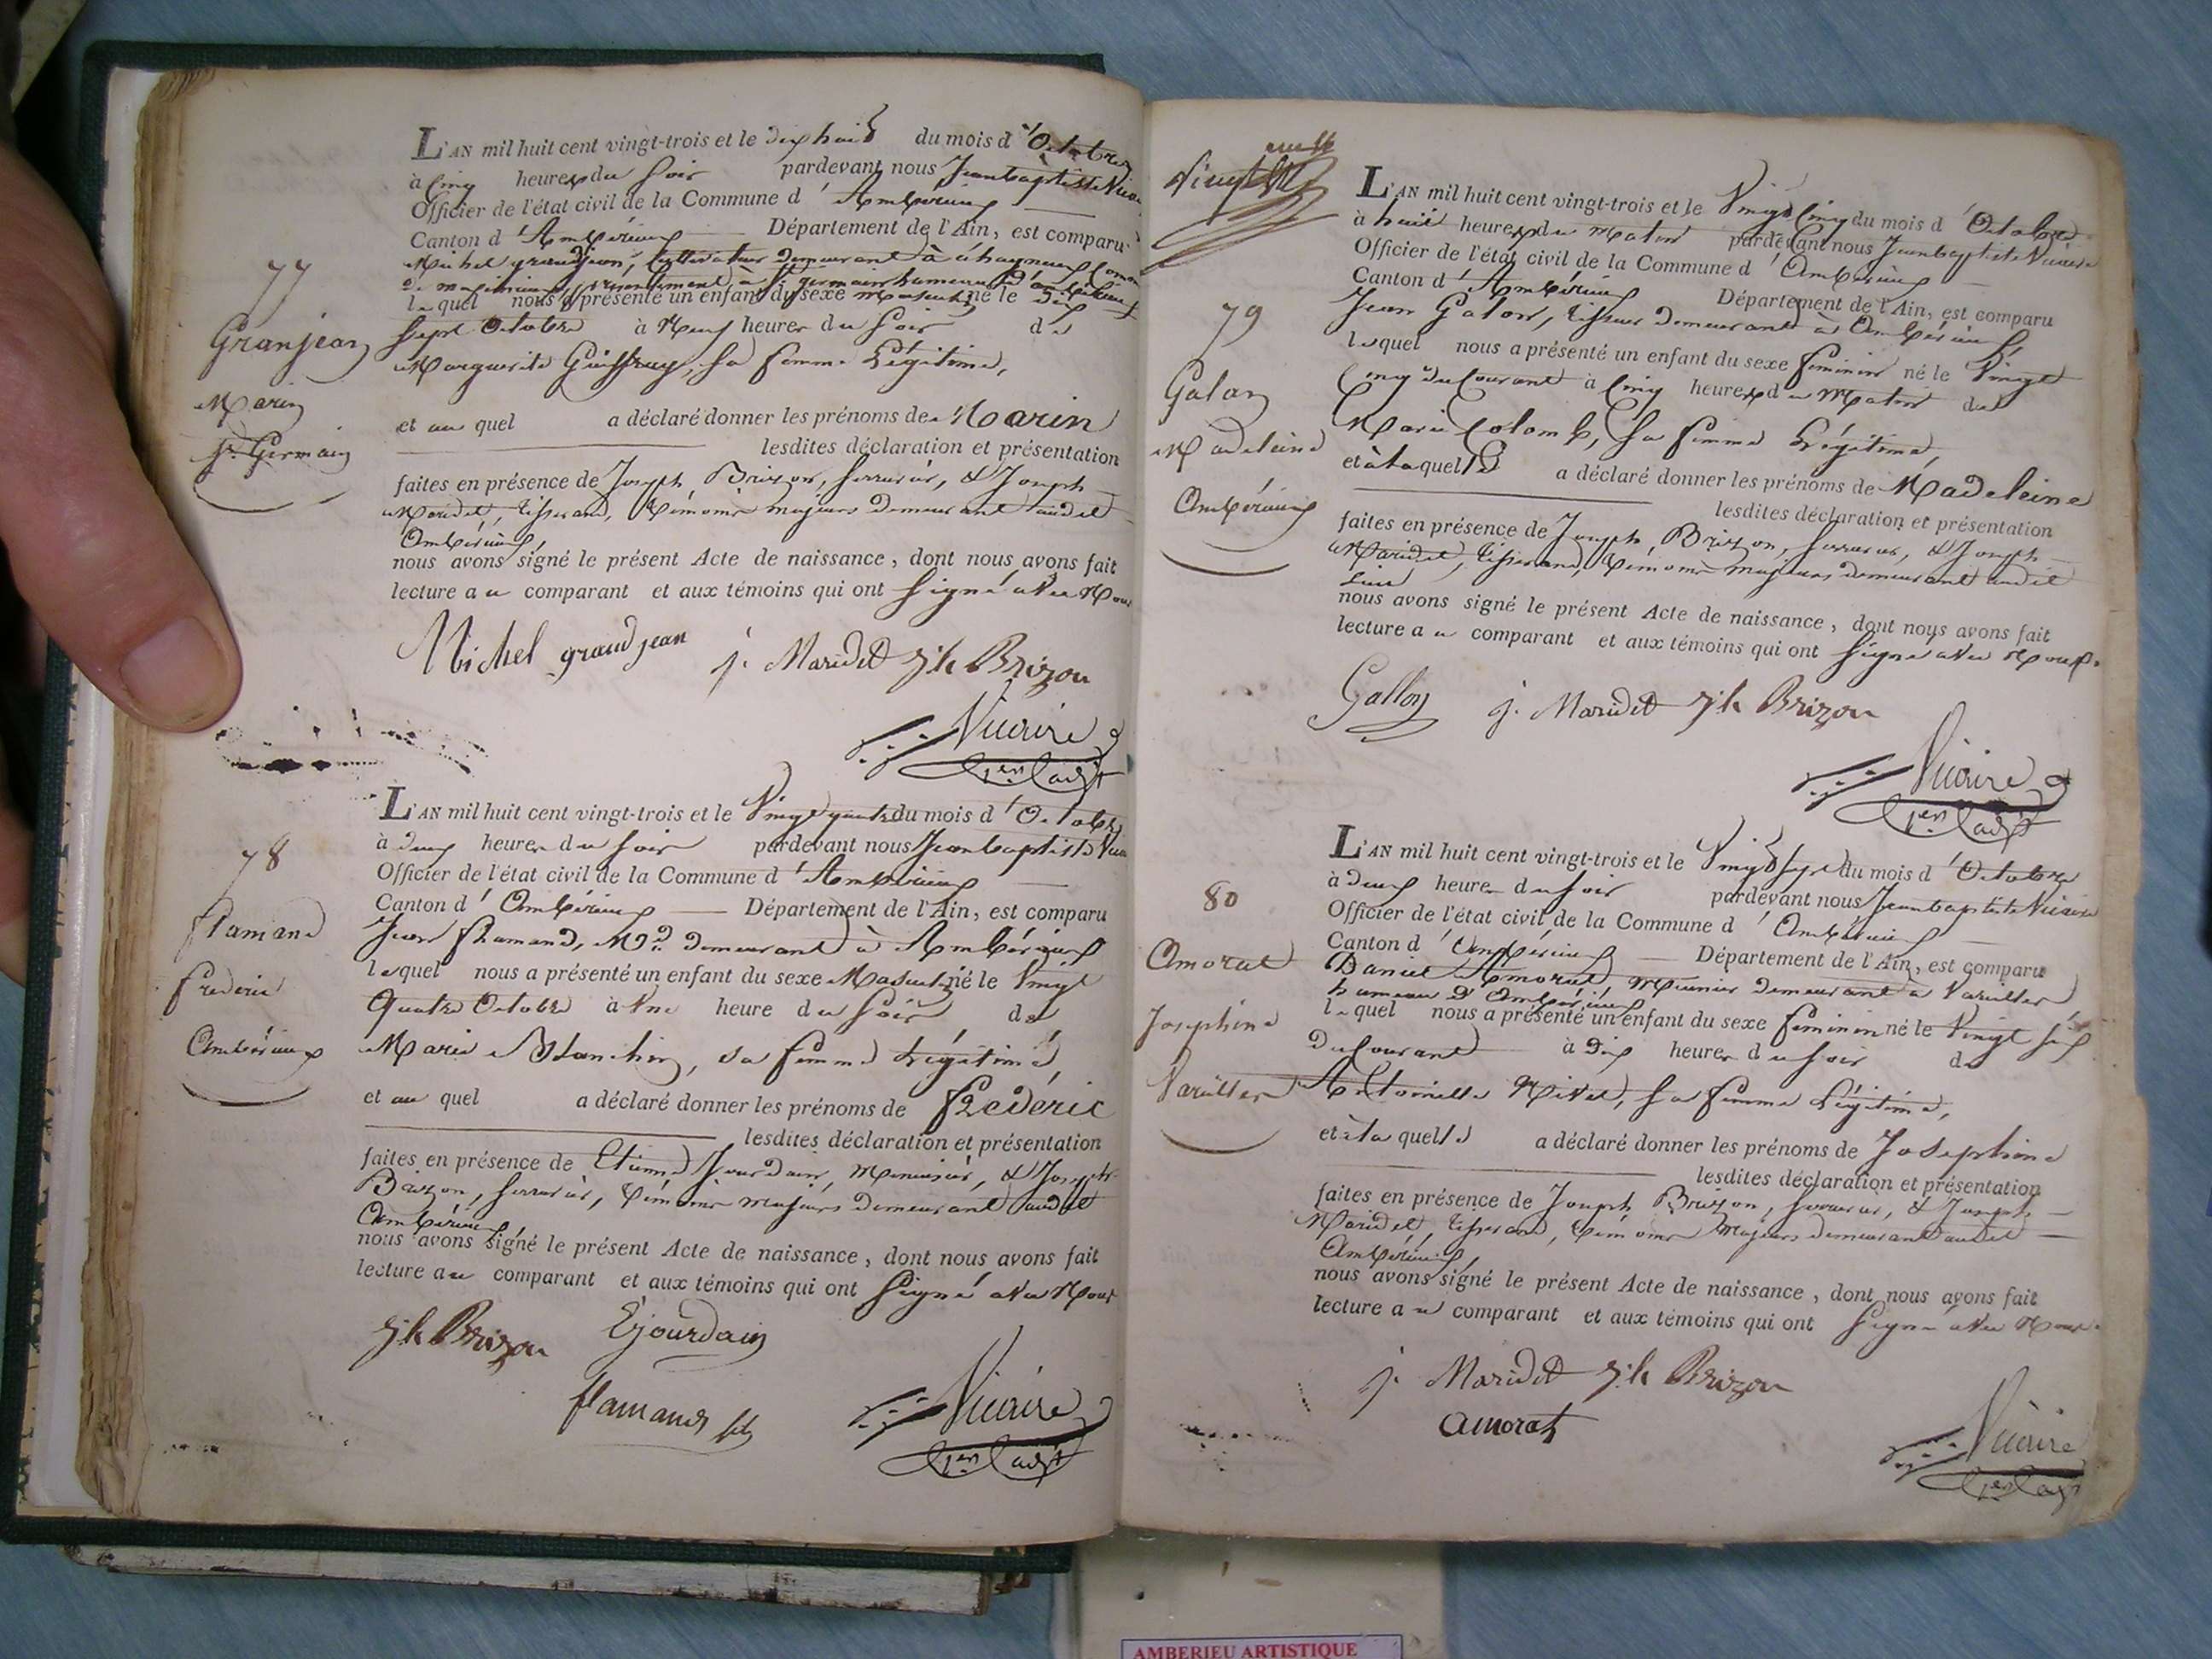 77
Granjean
Marin
St. Germain
L'AN mil huit cent vingt-trois et le dix huit du mois d'Octobre
à Cinq heures du Soir pardevant nous Jean baptiste Vicaire
Officier de l'état civil de la Commune d'Ambérieux
Canton d'Ambérieux Département de l'Ain, est comparu
Michel grandjean, Cultivateur demeurant à
présentement à St germain hameau d'ambérieux
lequel nous a présenté un enfant du sexe Masculin né le Dix
Sept Octobre à Neuf heures du Soir de
Marguerite Guiffray, Sa femme Légitime,
et au quel a déclaré donner les prénoms de Marin
lesdites déclaration et présentation
faites en présence de Joseph Brizon, Serrurier, & Joseph
Maridet, Tisserand, témoins majeurs demeurant audit
Ambérieux,
nous avons signé le présent Acte de naissance, dont nous avons fait
lecture au comparant et aux témoins qui ont Signé avec Nous
Michel grandjean j. Maridet Jh Brizon
Vicaire
78
flamand
frederic
Ambérieux
L'AN mil huit cent vingt-trois et le Vingt quatre du mois d'Octobre
à deux heures du Soir pardevant nous Jean baptiste Vicaire
Officier de l'état civil de la Commune d'Ambérieux
Canton d'Ambérieux Département de l'Ain, est comparu
Jean flamand, Md demeurant à Ambérieux
lequel nous a présenté un enfant du sexe Masculin né le Vingt
Quatre Octobre à Une heure du Soir de
Marie Blanchin, sa femme Légitime,
et au quel a déclaré donner les prénoms de frederic
lesdites déclaration et présentation
faites en présence de Etienne Jourdain, Menuisier, & Joseph
Brizon, Serrurier, témoins majeurs demeurant audit
Ambérieux,
nous avons signé le présent Acte de naissance, dont nous avons fait
lecture au comparant et aux témoins qui ont Signé avec Nous
Jh Brizon E jourdain
flamand fils Vicaire
79
Galon
Madeleine
Ambérieux
L'AN mil huit cent vingt-trois et le Vingt Cinq du mois d'Octobre
à huit heures du Matin pardevant nous Jean baptiste Vicaire
Officier de l'état civil de la Commune d'Ambérieux
Canton d'Ambérieux Département de l'Ain, est comparu
Jean Galon, Tisseur demeurant à Ambérieux,
lequel nous a présenté un enfant du sexe feminin né le Vingt
Cinq du Courant à Cinq heures du Matin de
Marie Colomb, Sa femme Légitime,
et à laquelle a déclaré donner les prénoms de Madeleine
lesdites déclaration et présentation
faites en présence de Joseph Brizon, Serrurier, & Joseph
Maridet, Tisserand, témoins majeurs demeurant audit
Lieu
nous avons signé le présent Acte de naissance, dont nous avons fait
lecture au comparant et aux témoins qui ont Signé avec Nous.
Gallon j. Maridet Jh Brizon
Vicaire
80
Amorat
Josephine
Vareilles
L'AN mil huit cent vingt-trois et le Vingt Sept du mois d'Octobre
à deux heures du Soir pardevant nous Jean baptiste Vicaire
Officier de l'état civil de la Commune d'Ambérieux
Canton d'Ambérieux Département de l'Ain, est comparu
Daniel Amorat, Meunier demeurant à Vareilles
hameau d'Ambérieux
lequel nous a présenté un enfant du sexe feminin né le Vingt Six
du Courant à Dix heures du Soir de
Antoinette Nivet, Sa femme Légitime,
et à laquelle a déclaré donner les prénoms de Josephine
lesdites déclaration et présentation
faites en présence de Joseph Brizon, Serrurier, & Joseph
Maridet, Tisserand, témoins Majeurs demeurant audit
Ambérieux,
nous avons signé le présent Acte de naissance, dont nous avons fait
lecture au comparant et aux témoins qui ont Signé avec Nous.
j. Maridet Jh Brizon
amorat Vicaire
AMBERIEU ARTISTIQUE